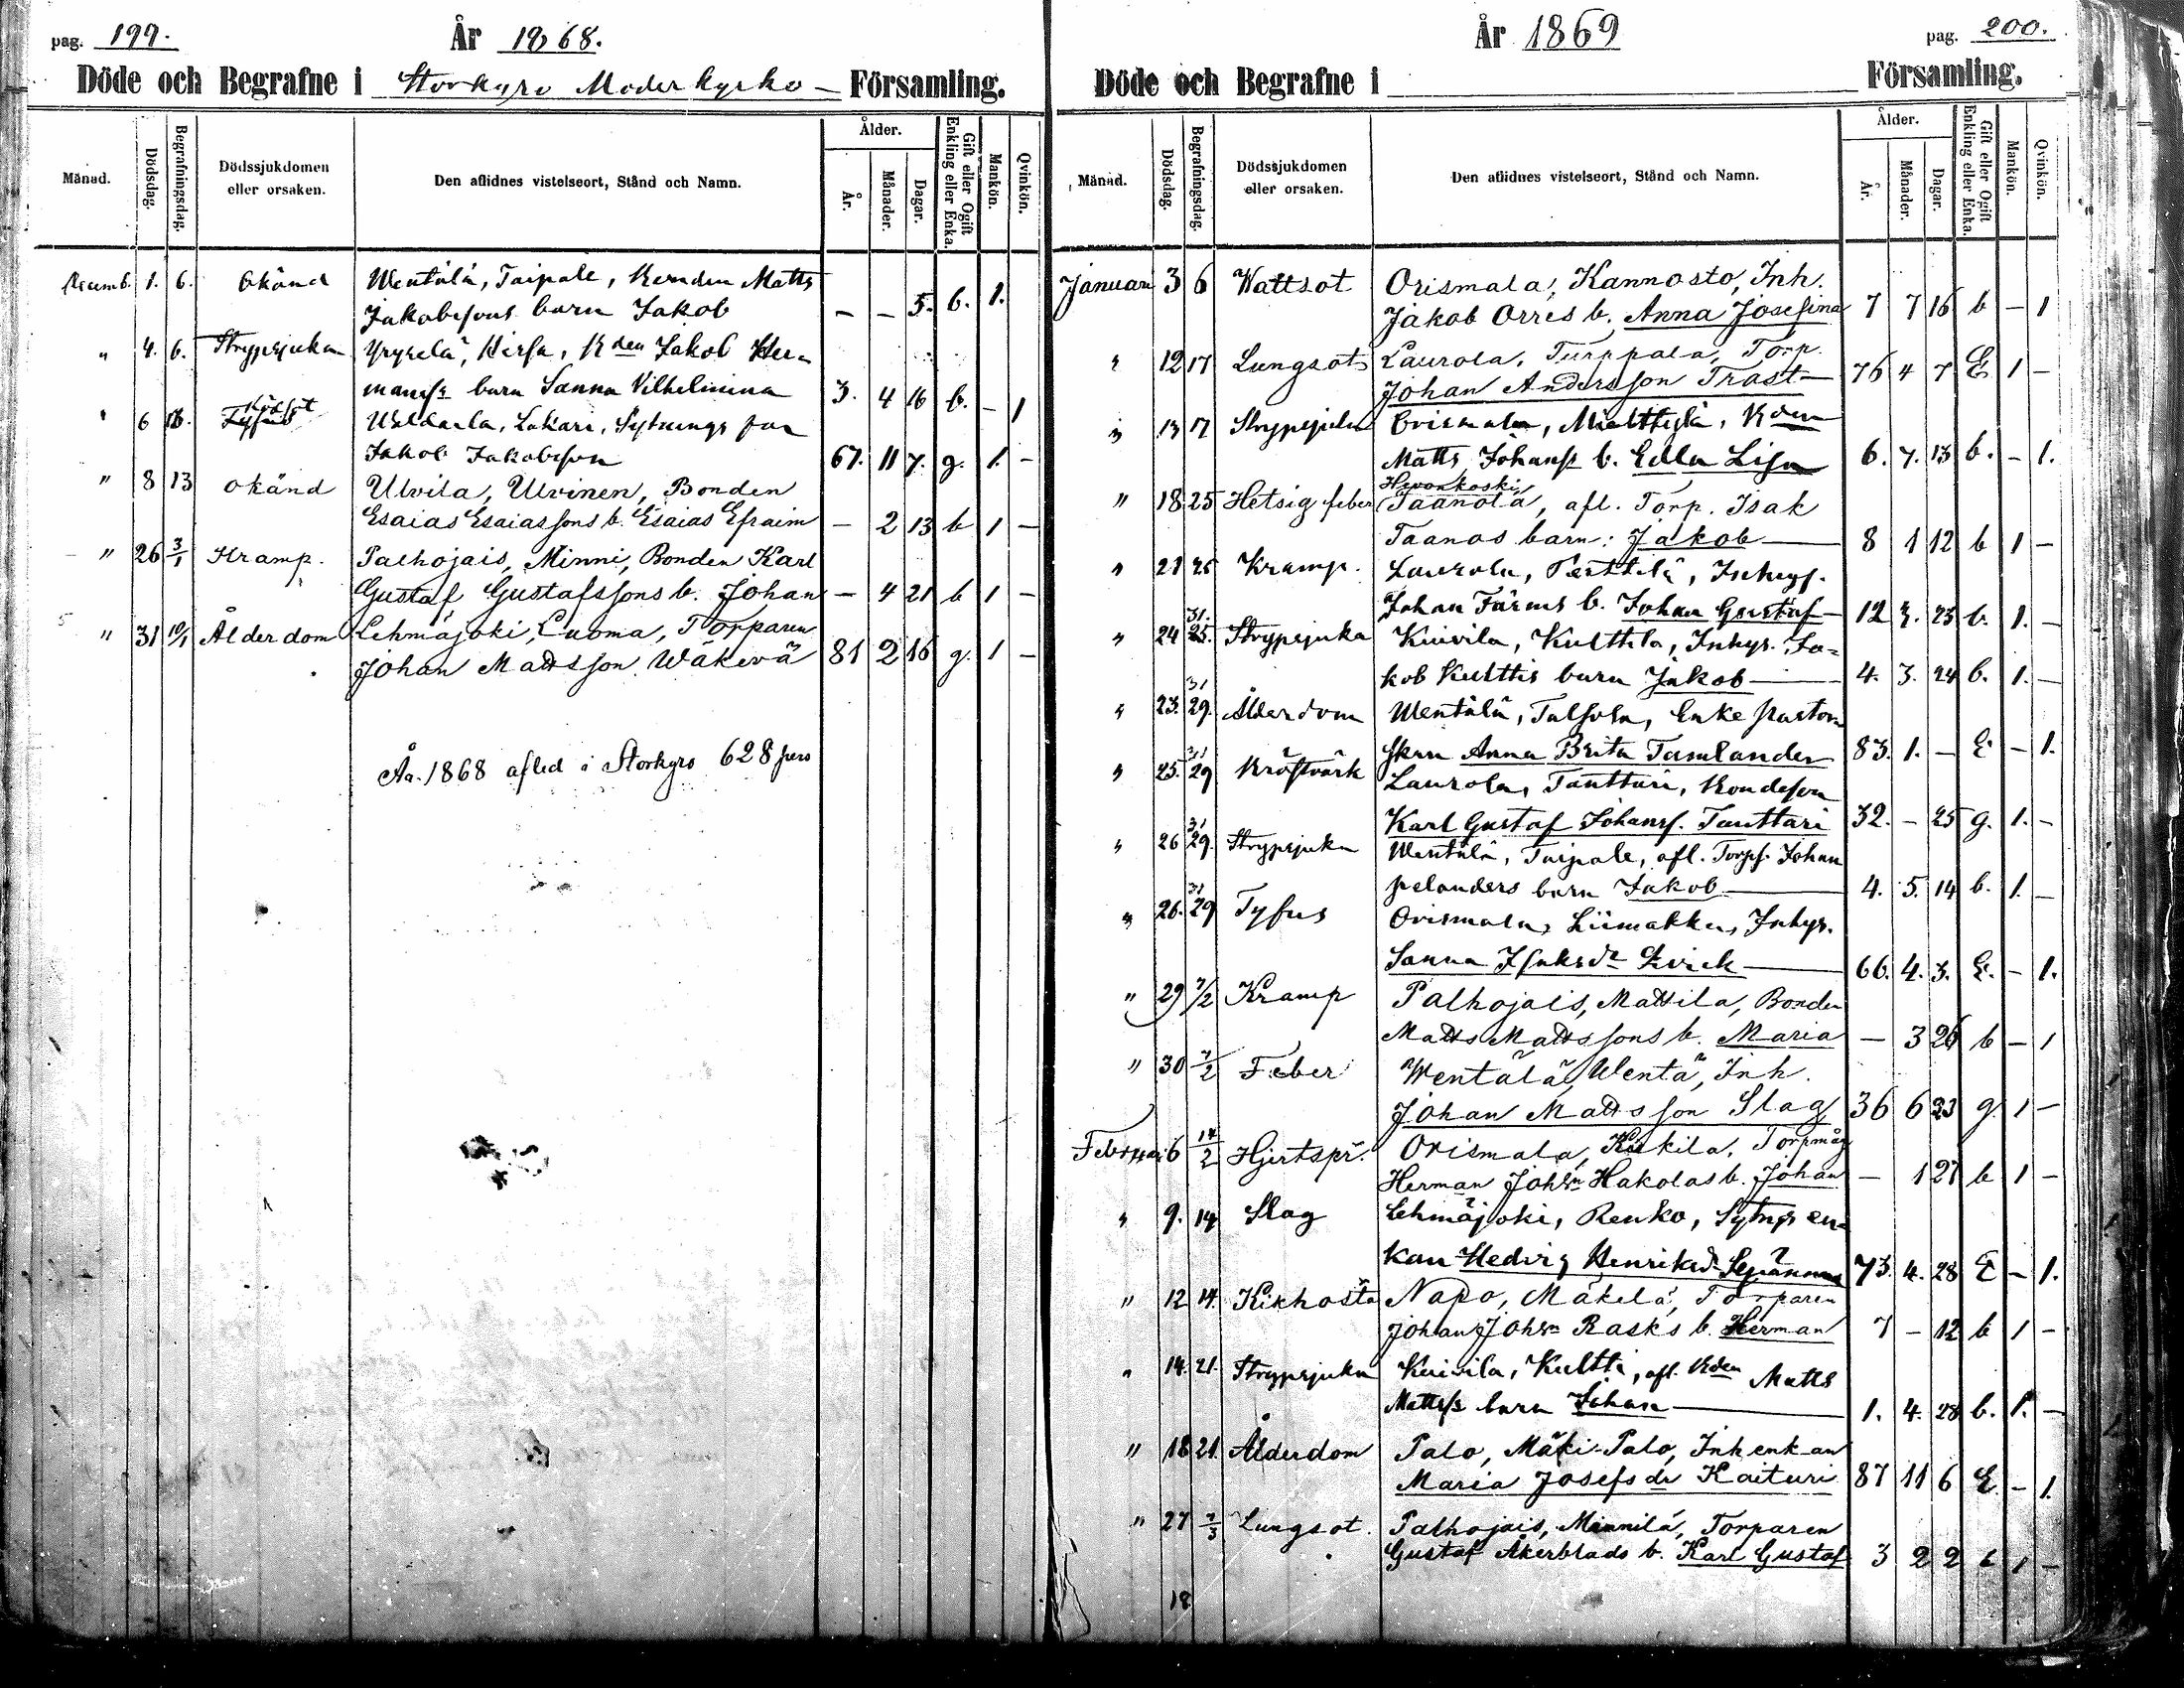 pag. 199.
År 1868.
Döde och Begrafne i Storkyro Moderkyrko- Församling.
Månad. Dödsdag. Begrafningsdag. Dödssjukdomen eller orsaken. Den aflidnes vistelseort, Stånd och Namn. Ålder. År. Månader. Dagar. Gift eller Ogift Enkling eller Enka. Mankön. Qvinkön.
Decemb. 1. 6. Okänd Wentälä, Taipale, Bonden Matts
Jakobssons barn Jakob — — 5. b. 1.
" 4. 6. Strypsjuka Yryselä, Hirfa, Bden Jakob Her-
manss barn Sanna Vilhelmina 3. 4 16 b. — 1
" 6 Tyfus Lakari, Sytnings
Jakob Jakobsson 67. 11 7. g. 1. —
" 8 13 okänd Ulvila, Ulvinen, Bonden
Esaias Esaiassons b. Esaias Efraim — 2 13 b 1 —
" 26 3/1 Kramp. Palhojais, Minni, Bonden Karl
Gustaf Gustafssons b. Johan — 4 21 b 1 —
" 31 10/1 Ålderdom Lehmäjoki, Luoma, Torparen
Johan Mattsson Wäkevä 81 2 16 g. 1 —
År 1868 afled i Storkyro 628 pers
pag. 200.
År 1869
Döde och Begrafne i Församling.
Månad. Dödsdag. Begrafningsdag. Dödssjukdomen eller orsaken. Den aflidnes vistelseort, Stånd och Namn. Ålder. År. Månader. Dagar. Gift eller Ogift Enkling eller Enka. Mankön. Qvinkön.
Januari 3 6 Wattsot Orismala, Kannosto, Inh.
Jakob Orres b. Anna Josefina 7 7 16 b — 1
" 12 17 Lungsot Laurola, Turppala, Torp.
Johan Andersson Trast — 76 4 7 E 1 —
" 13 17 Strypsjuka Orismala, Mälttylä, Bden
Matts Johanss b. Edla Lisa 6. 7. 13 b. — 1.
Hevonkoski
" 18 25 Hetsig feber Taanola, afl. Torp. Isak
Taanos barn: Jakob — 8 1 12 b 1 —
" 21 25 Kramp. Laurola, Perttilä, Inhys.
Johan Färms b. Johan Gustaf — 12 25 b. 1. —
31.
" 24 25. Strypsjuka Kuivila, Kulttila, Inhys. Ja-
kob Kulttis barn Jakob — 4. 3. 24 b. 1. —
31
" 23. 29. Ålderdom Wentälä, Talsola, Enke pastor-
skan Anna Brita Tamlander 83. 1. — E — 1.
31
" 25. 29 Kräftvärk Laurola, Tauttari, Bondeson
Karl Gustaf Johanss. Tauttari 32. — 25 g. 1. —
31
" 26 29. Strypsjuka Wentälä, Taipale, afl. Torp. Johan
pelanders barn Jakob — 4. 5. 14 b. 1. —
31
" 26. 29 Tyfus Orismala, Liimakka, Inhys.
Sanna Isaksdr Qvick — 66. 4. 3. E. — 1.
" 29 7/2 Kramp Palhojais, Mattila, Bonden
Matts Mattssons b. Maria — 3 26 b — 1
" 30 7/2 Feber Wentälä, Wentä, Inh.
Johan Mattsson Slag 36 6 23 g. 1 —
Februari 6 14/2 Hjertspr. Orismala, Kiikila, Torpmåg
Herman Johsn Hakolas b. Johan — 1 27 b 1 —
" 9. 14 Slag Lehmäjoki, Renko, Sytngs en-
kan Hedvig Henriksd 73. 4. 28 E — 1.
" 12 14. Kikhosta Napo, Mäkelä, Torparen
Johan Johsn Rasks b. Herman 7 — 12 b 1 —
" 14. 21. Strypsjuka Kuivila, Kultti, afl. Bden Matts
Mattss barn Johan — 1. 4. 28 b. 1. —
" 18 21. Ålderdom Palo, Mäki-Palo, Inhenkan
Maria Josefsdr Kaituri 87 11 6 E — 1.
" 27 7/3 Lungsot. Palhojais, Minnilä, Torparen
Gustaf Åkerblads b. Karl Gustaf 3 2 2 b 1 —
18